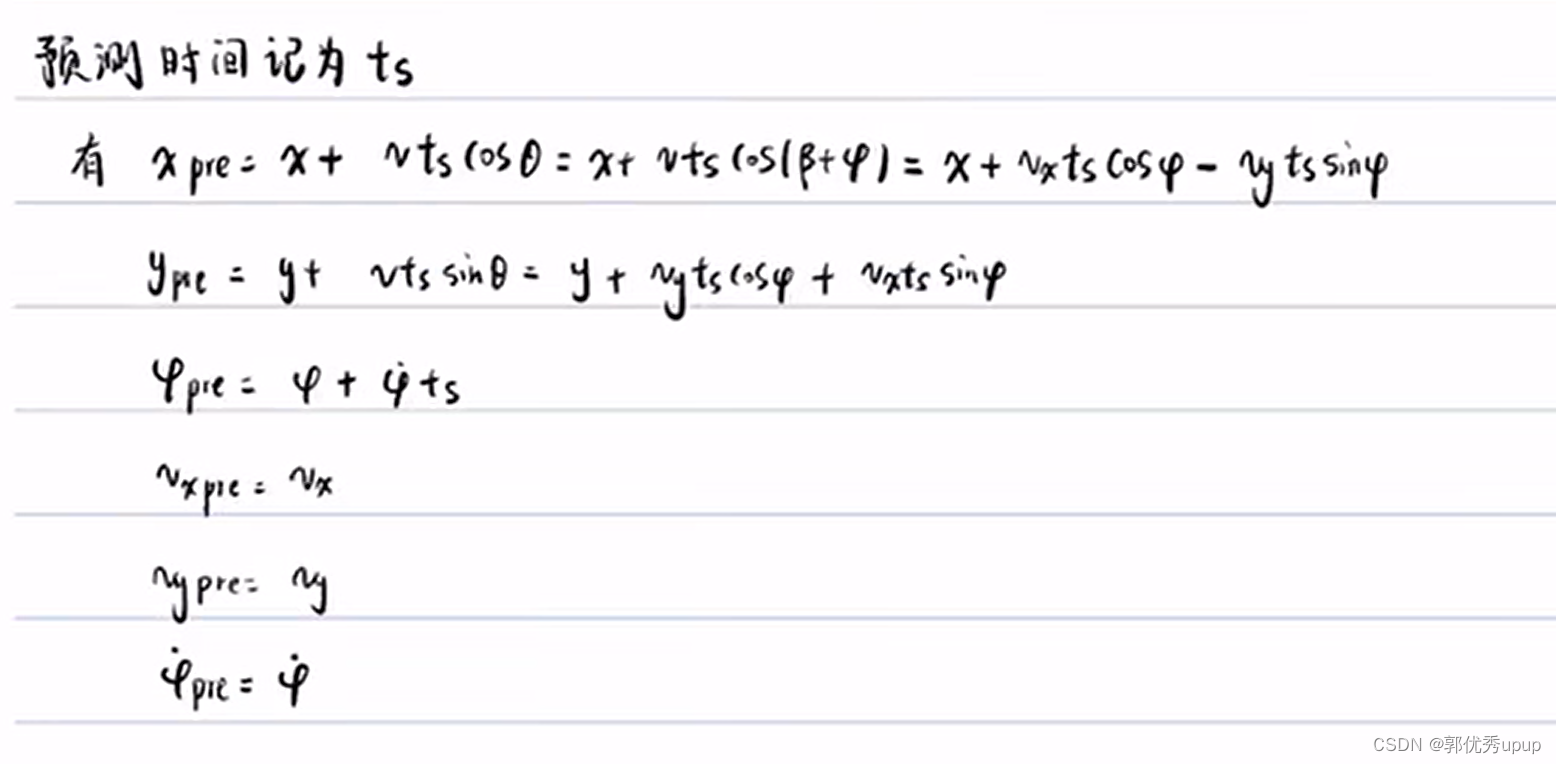 预测时间记为 ts
有 xpre = x + vts cosθ = x + vts cos(β+φ) = x + vxts cosφ - vy ts sinφ
ypre = y + vts sinθ = y + vyts cosφ + vxts sinφ
φpre = φ + φ̇ ts
vxpre = vx
vypre = vy
φ̇pre = φ̇
CSDN @郭优秀upup